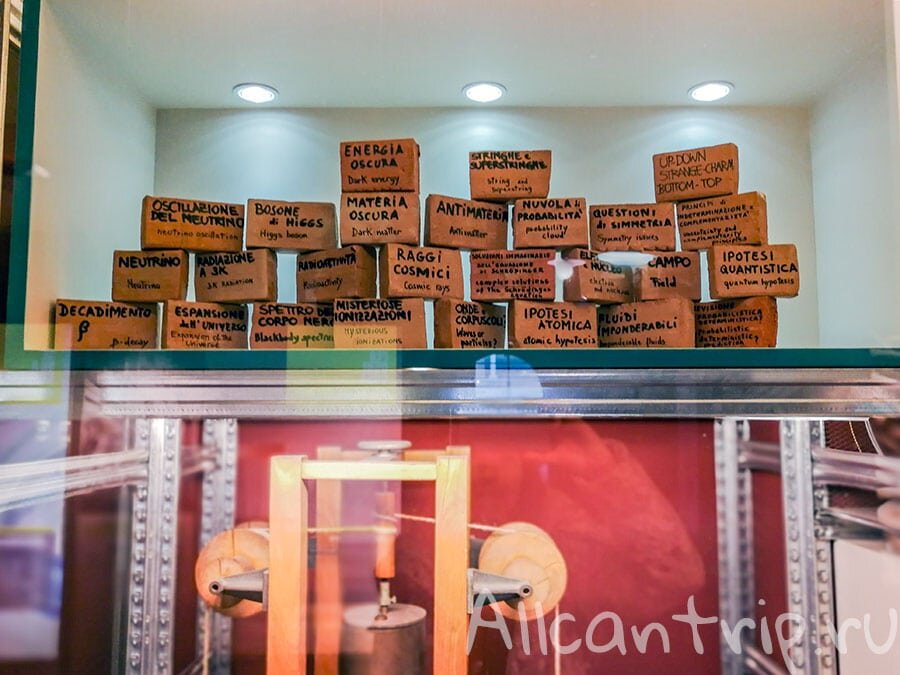 ENERGIA
OSCURA
Dark energy
STRINGHE e
SUPERSTRINGHE
String and
Superstring
UP-DOWN
STRANGE-CHARM
BOTTOM-TOP
OSCILLAZIONE
DEL NEUTRINO
neutrino oscillation
BOSONE
di HIGGS
Higgs boson
MATERIA
OSCURA
Dark matter
ANTIMATERIA
Antimatter
NUVOLA di
PROBABILITÀ
probability
cloud
QUESTIONI
di SIMMETRIA
Symmetry issues
PRINCIPI di
INDETERMINAZIONE e
COMPLEMENTARITÀ
uncertainty and
complementarity
principles
NEUTRINO
Neutrino
RADIAZIONE
A 3K
3K RADIATION
RADIOATTIVITÀ
Radioactivity
RAGGI
COSMICI
Cosmic rays
SOLUZIONI IMMAGINARIE
DELL'EQUAZIONE di
SCHRÖDINGER
complex solutions
of The Schrödinger
Equation
NUCLEO
CAMPO
Field
IPOTESI
QUANTISTICA
quantum hypotesis
DECADIMENTO
β
β-decay
ESPANSIONE
dell'UNIVERSO
Expansion of the
Universe
SPETTRO DEL
CORPO NERO
Blackbody spectrum
MISTERIOSE
IONIZZAZIONI
MYSTERIOUS
IONIZATIONS
ONDE o
CORPUSCOLI
Waves or
particles?
IPOTESI
ATOMICA
atomic hypotesis
FLUIDI
IMPONDERABILI
Imponderable fluids
Probabilistic
deterministic
prediction
Allcantrip.ru